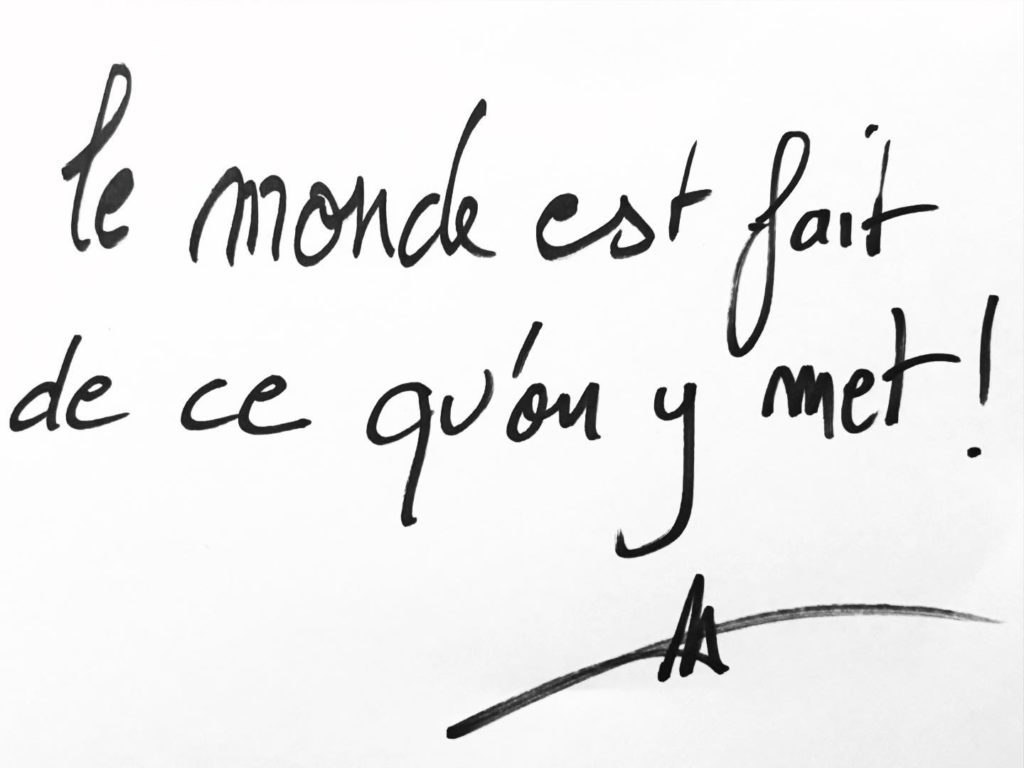 le monde est fait
de ce qu'on y met !